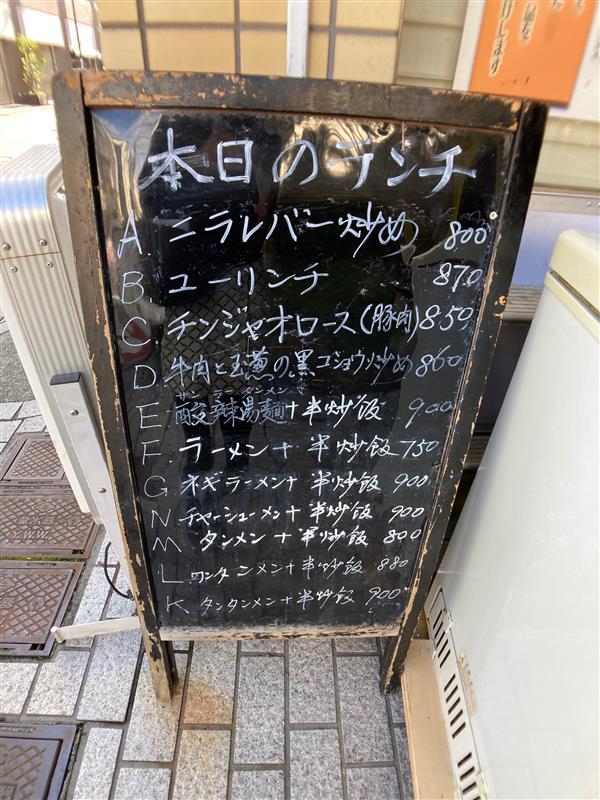 本日のランチ
A. ニラレバー炒め 800
B ユーリンチ 870
C. チンジャオロース(豚肉)850
D. 牛肉と玉葱の黒コショウソ炒め 860
サンラータンメン
E. 酸辣湯麺+半炒飯 900
F. ラーメン+半炒飯 750
G ネギラーメン+半炒飯 900
N チャーシューメン+半炒飯 900
M. タンメン+半炒飯 800
L. ワンタンメン+半炒飯 880
K. タンタンメン+半炒飯 900
します